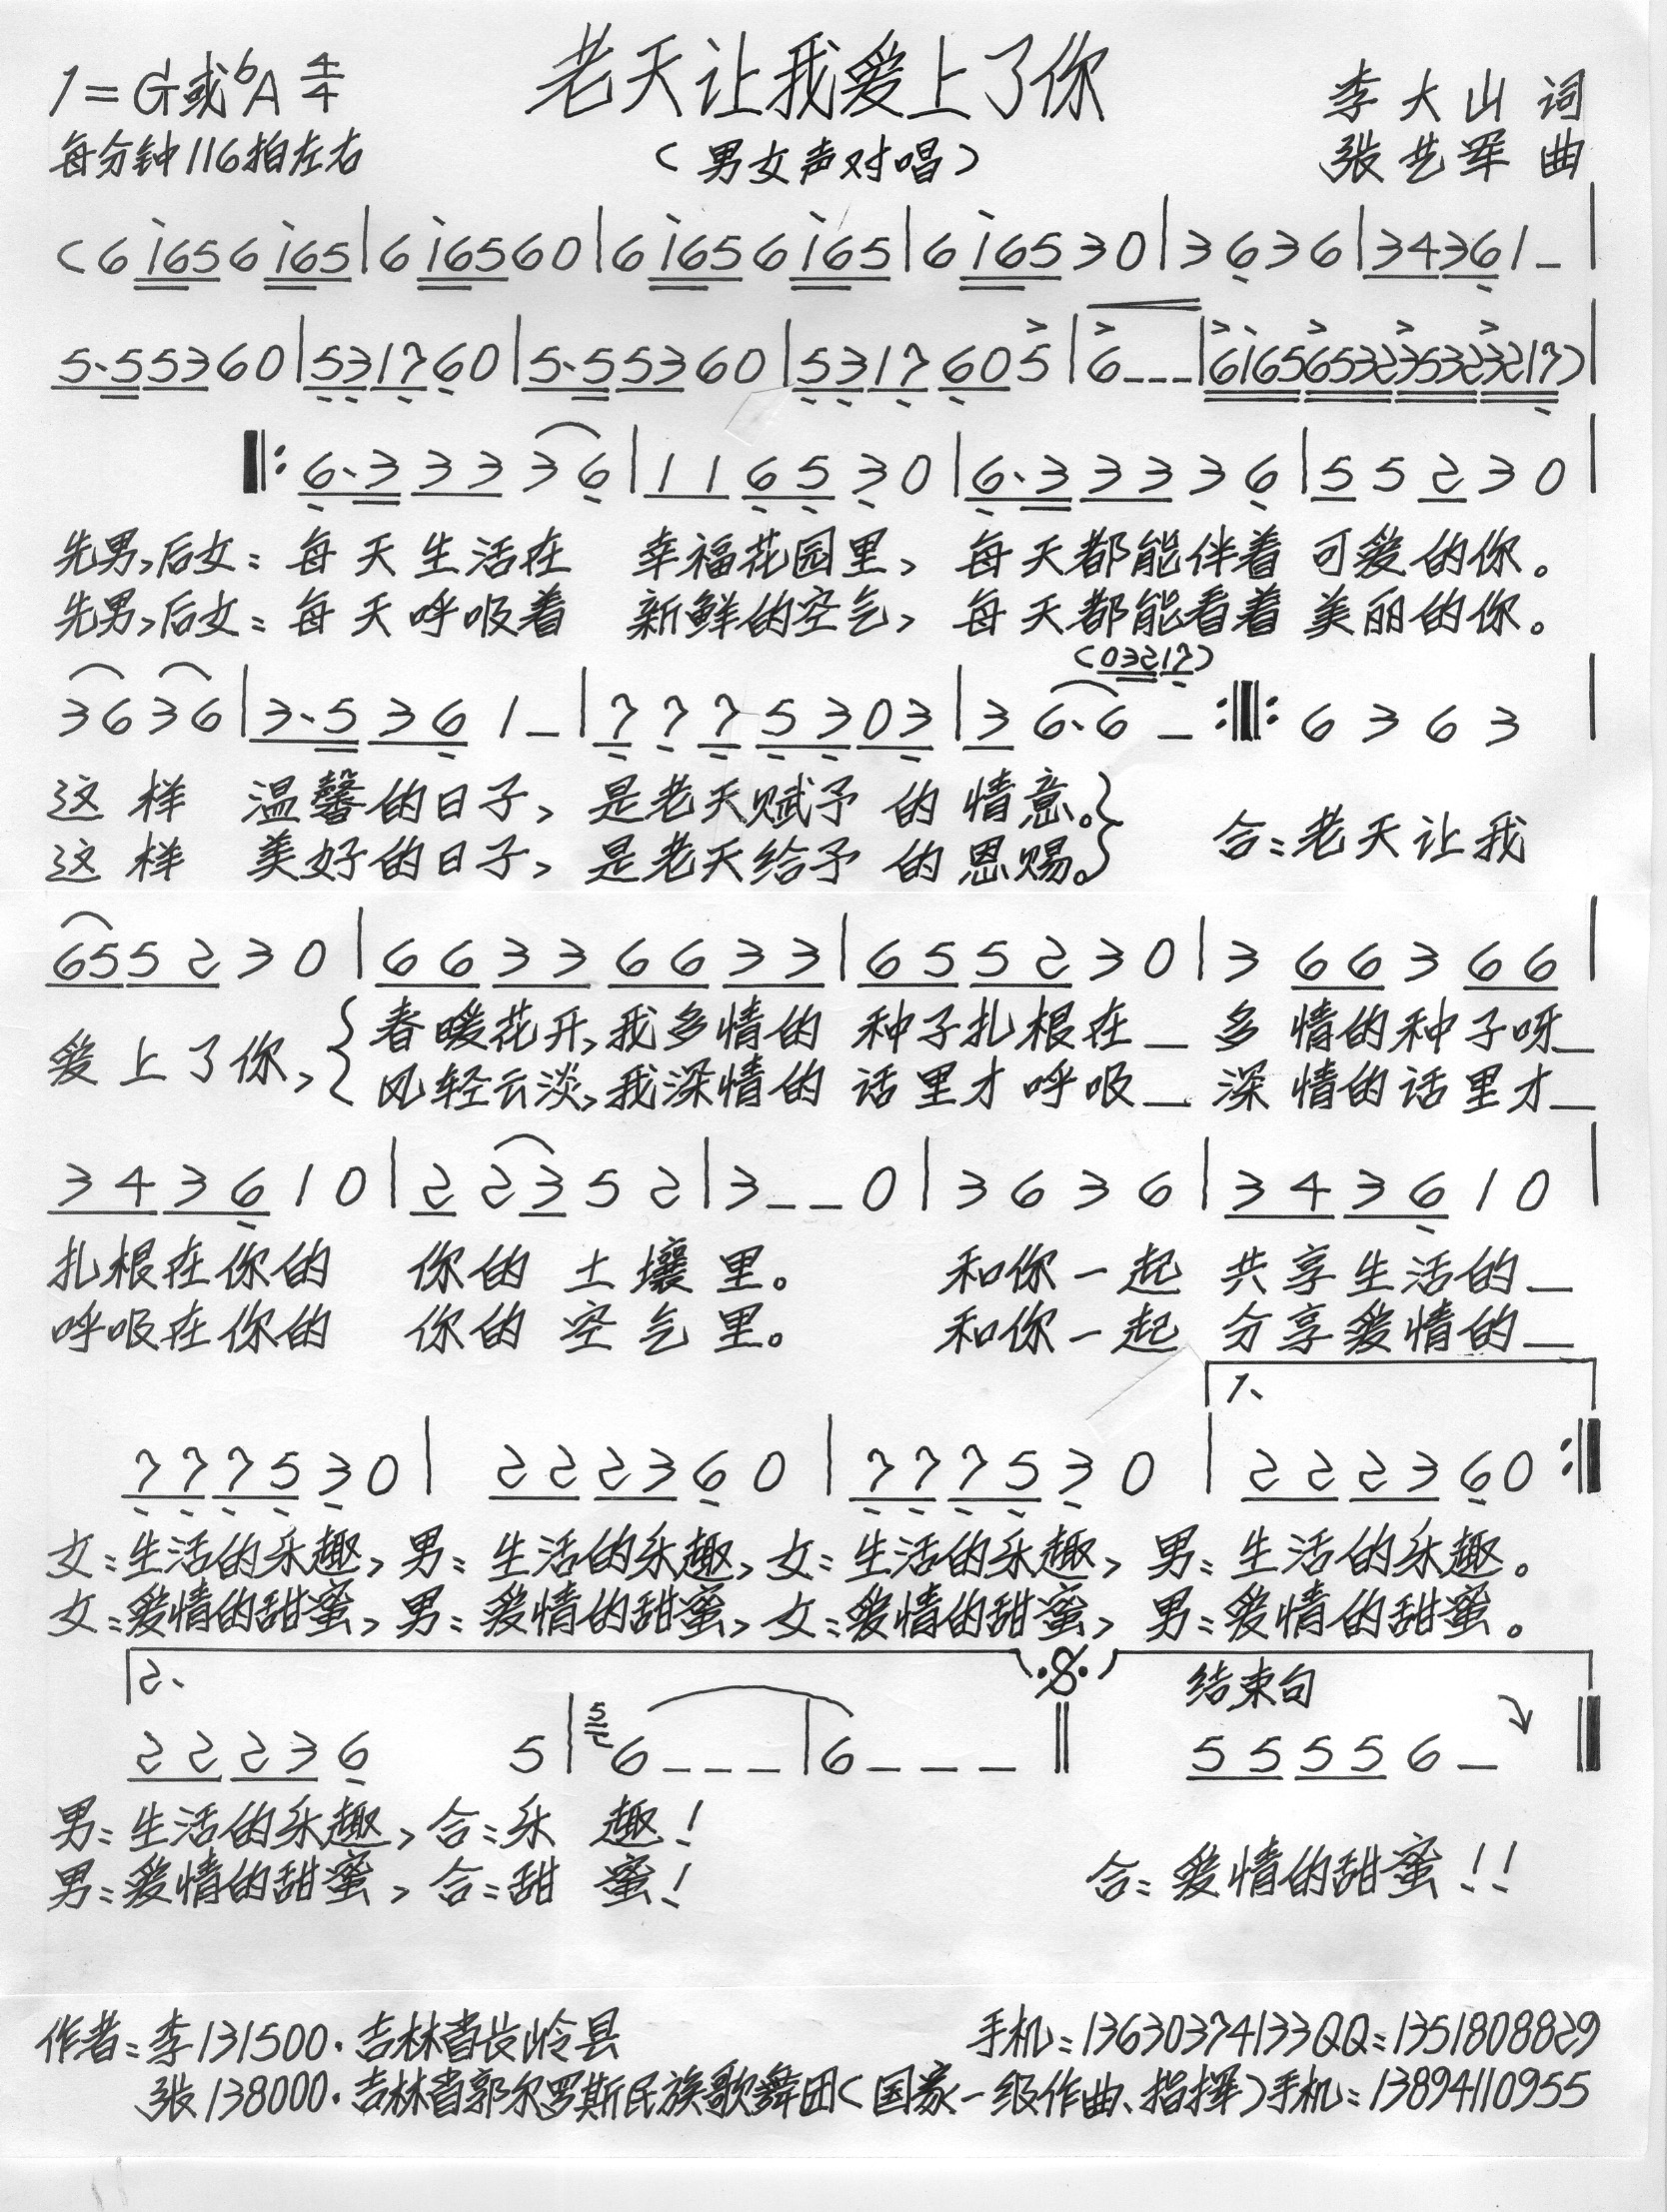 老天让我爱上了你
1=G或bA 4/4
李大山 词
每分钟116拍左右
（男女声对唱）
张艺军 曲
(6 i656 i65|6 i6560|6 i656 i65|6 i6530|3636|34361-|
5·55360|531760|5·55360|5317605|6---|6i65653235323217)|
‖:6·33336|116530|6·33336|55230|
先男,后女:每天生活在 幸福花园里,每天都能伴着可爱的你。
先男,后女:每天呼吸着 新鲜的空气,每天都能看着美丽的你。
(03217)
3636|3·5361-|7775303|36·6-:‖:6363|
这样 温馨的日子,是老天赋予的情意。
这样 美好的日子,是老天给予的恩赐。
合:老天让我
655230|66333 6633|655230|366366|
爱上了你,
春暖花开,我多情的 种子扎根在_多情的种子呀_
风轻云淡,我深情的 话里才呼吸_深情的话里才_
343610|22352|3--0|3636|343610|
扎根在你的 你的土壤里。 和你一起 共享生活的_
呼吸在你的 你的空气里。 和你一起 分享爱情的_
1、
777530|222360|777530|222360:‖
女:生活的乐趣,男:生活的乐趣,女:生活的乐趣,男:生活的乐趣。
女:爱情的甜蜜,男:爱情的甜蜜,女:爱情的甜蜜,男:爱情的甜蜜。
2、
结束句
22236 5|5 6---|6---‖ 55556-‖
男:生活的乐趣,合:乐 趣!
男:爱情的甜蜜,合:甜 蜜!
合:爱情的甜蜜!!
作者:李131500·吉林省长岭县 手机:13630374133QQ:1351808829
张138000·吉林省郭尔罗斯民族歌舞团(国家一级作曲、指挥)手机:13894110955